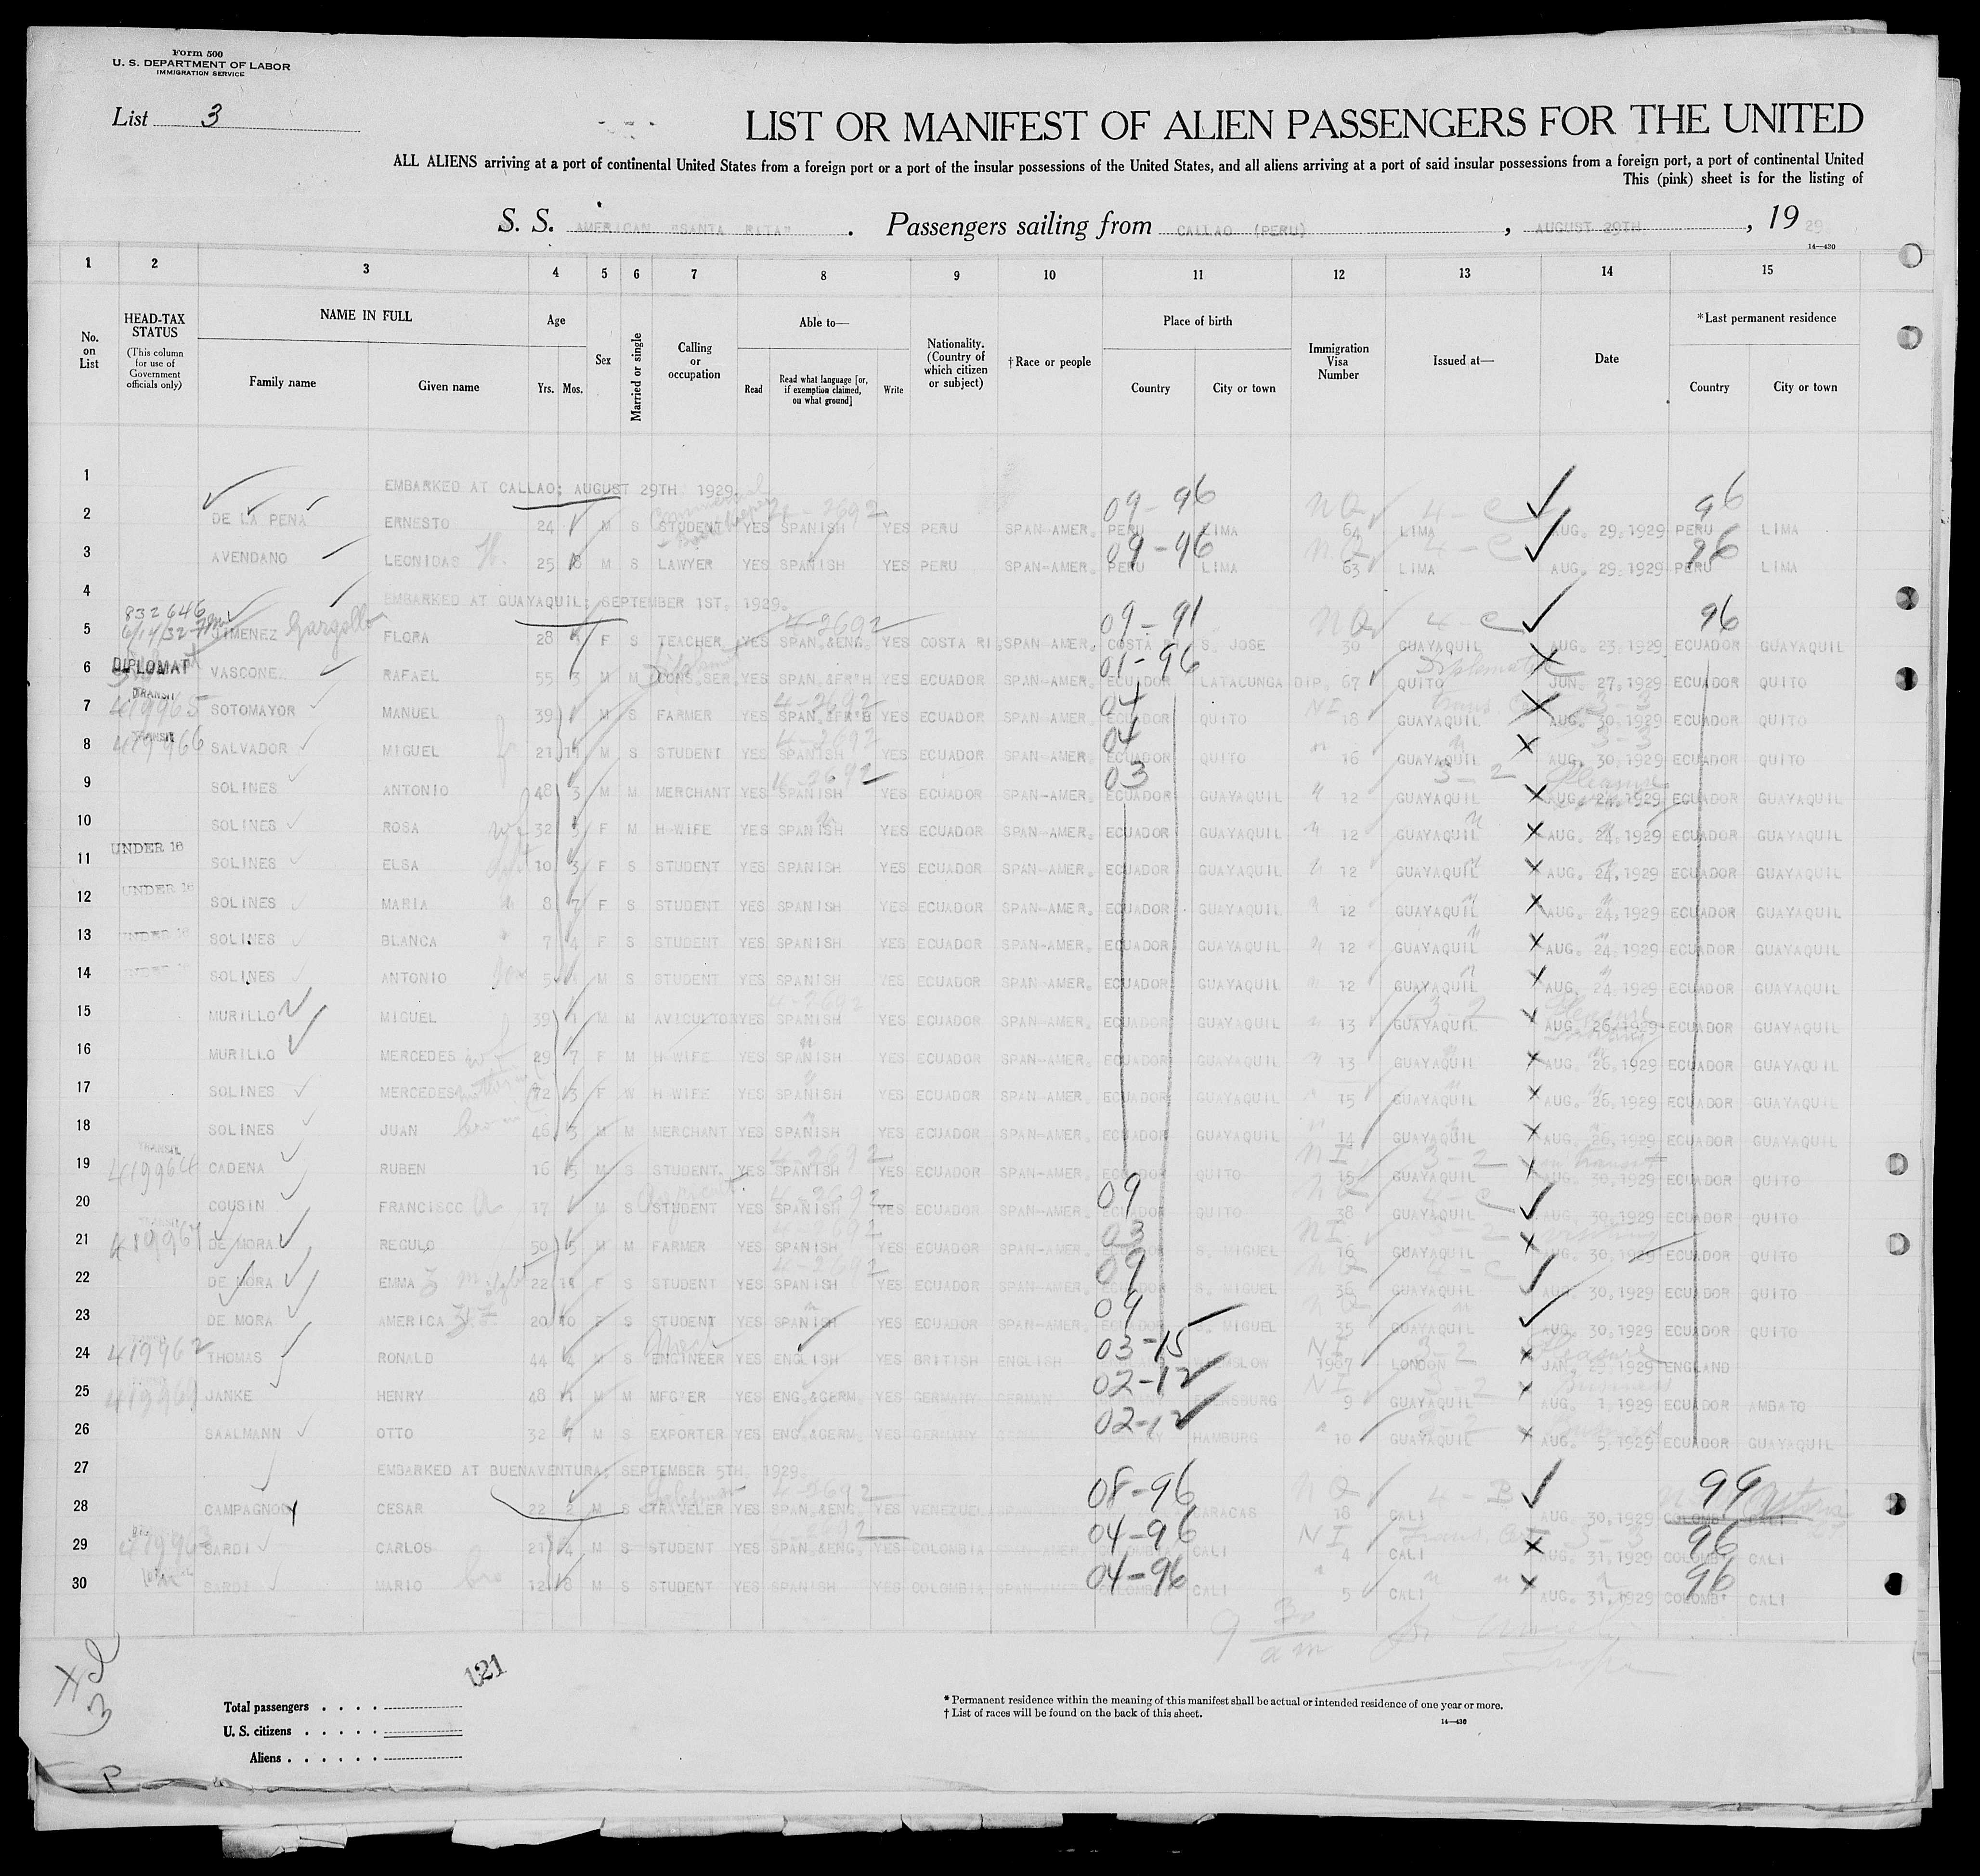 Form 500
U. S. DEPARTMENT OF LABOR
IMMIGRATION SERVICE
List 3
LIST OR MANIFEST OF ALIEN PASSENGERS FOR THE UNITED
ALL ALIENS arriving at a port of continental United States from a foreign port or a port of the insular possessions of the United States, and all aliens arriving at a port of said insular possessions from a foreign port, a port of continental United
This (pink) sheet is for the listing of
S. S. AMERICAN "SANTA RITA". Passengers sailing from CALLAO (PERU), AUGUST 29TH, 1929
14—430
1 2 3 4 5 6 7 8 9 10 11 12 13 14 15
No. on List
HEAD-TAX STATUS (This column for use of Government officials only)
NAME IN FULL Family name Given name
Age Yrs. Mos.
Sex
Married or single
Calling or occupation
Able to— Read Read what language [or, if exemption claimed, on what ground] Write
Nationality. (Country of which citizen or subject)
†Race or people
Place of birth Country City or town
Immigration Visa Number
Issued at—
Date
*Last permanent residence Country City or town
1 EMBARKED AT CALLAO; AUGUST 29TH 1929.
09-96 NQ 4-C 96
2 DE LA PENA ERNESTO 24 M S STUDENT YES SPANISH YES PERU SPAN-AMER. PERU LIMA 64 LIMA AUG. 29,1929 PERU LIMA
09-96 NQ 4-C 96
3 AVENDANO LEONIDAS H. 25 M S LAWYER YES SPANISH YES PERU SPAN-AMER. PERU LIMA 63 LIMA AUG. 29,1929 PERU LIMA
4 EMBARKED AT GUAYAQUIL; SEPTEMBER 1ST. 1929.
832646 4-2692 09-91 NQ 4-C 96
5 JIMENEZ Gargollo FLORA 28 F S TEACHER YES SPAN.&ENG. YES COSTA RI. SPAN-AMER. COSTA RI S. JOSE 30 GUAYAQUIL AUG. 23,1929 ECUADOR GUAYAQUIL
01-96
6 DIPLOMAT VASCONEZ RAFAEL 55 3 M M CONS.SER. YES SPAN.&FR'H YES ECUADOR SPAN-AMER. ECUADOR LATACUNGA DIP. 67 QUITO JUN. 27,1929 ECUADOR QUITO
TRANSIT 4-2692 04 NI 3-3
7 419965 SOTOMAYOR MANUEL 39 M S FARMER YES SPAN.&FR'H YES ECUADOR SPAN-AMER. ECUADOR QUITO 18 GUAYAQUIL AUG. 30,1929 ECUADOR QUITO
TRANSIT 4-2692 04 3-3
8 419966 SALVADOR MIGUEL 21 11 M S STUDENT YES SPANISH YES ECUADOR SPAN-AMER. ECUADOR QUITO 16 GUAYAQUIL AUG. 30,1929 ECUADOR QUITO
03 3-2 Pleasure
9 SOLINES ANTONIO 48 3 M M MERCHANT YES SPANISH YES ECUADOR SPAN-AMER. ECUADOR GUAYAQUIL 12 GUAYAQUIL AUG. 24,1929 ECUADOR GUAYAQUIL
10 SOLINES ROSA wf 32 M H-WIFE YES SPANISH YES ECUADOR SPAN-AMER. ECUADOR GUAYAQUIL 12 GUAYAQUIL AUG. 24,1929 ECUADOR GUAYAQUIL
UNDER 16
11 SOLINES ELSA 10 3 F S STUDENT YES SPANISH YES ECUADOR SPAN-AMER. ECUADOR GUAYAQUIL 12 GUAYAQUIL AUG. 24,1929 ECUADOR GUAYAQUIL
UNDER 16
12 SOLINES MARIA 8 7 F S STUDENT YES SPANISH YES ECUADOR SPAN-AMER. ECUADOR GUAYAQUIL 12 GUAYAQUIL AUG. 24,1929 ECUADOR GUAYAQUIL
UNDER 16
13 SOLINES BLANCA 7 4 F S STUDENT YES SPANISH YES ECUADOR SPAN-AMER. ECUADOR GUAYAQUIL 12 GUAYAQUIL AUG. 24,1929 ECUADOR GUAYAQUIL
14 SOLINES ANTONIO son 5 M S STUDENT YES SPANISH YES ECUADOR SPAN-AMER. ECUADOR GUAYAQUIL 12 GUAYAQUIL AUG. 24,1929 ECUADOR GUAYAQUIL
4-2692 3-2 Pleasure
15 MURILLO MIGUEL 39 1 M M AVICULTOR YES SPANISH YES ECUADOR SPAN-AMER. ECUADOR GUAYAQUIL 13 GUAYAQUIL AUG. 26,1929 ECUADOR GUAYAQUIL
16 MURILLO MERCEDES wf 29 7 F M H-WIFE YES SPANISH YES ECUADOR SPAN-AMER. ECUADOR GUAYAQUIL 13 GUAYAQUIL AUG. 26,1929 ECUADOR GUAYAQUIL
17 SOLINES MERCEDES 72 3 F W H-WIFE YES SPANISH YES ECUADOR SPAN-AMER. ECUADOR GUAYAQUIL 15 GUAYAQUIL AUG. 26,1929 ECUADOR GUAYAQUIL
18 SOLINES JUAN 46 3 M M MERCHANT YES SPANISH YES ECUADOR SPAN-AMER. ECUADOR GUAYAQUIL 14 GUAYAQUIL AUG. 26,1929 ECUADOR GUAYAQUIL
TRANSIT 4-2692 NI 3-2 in transit
19 419964 CADENA RUBEN 16 5 M S STUDENT YES SPANISH YES ECUADOR SPAN-AMER. ECUADOR QUITO 15 GUAYAQUIL AUG. 30,1929 ECUADOR QUITO
4-2692 09 NQ 4-C
20 COUSIN FRANCISCO A 17 M S STUDENT YES SPANISH YES ECUADOR SPAN-AMER. ECUADOR QUITO 38 GUAYAQUIL AUG. 30,1929 ECUADOR QUITO
03 NI 2
21 DE MORA REGULO 50 5 M M FARMER YES SPANISH YES ECUADOR SPAN-AMER. S. MIGUEL 16 GUAYAQUIL AUG. 30,1929 ECUADOR QUITO
4-2692 09 NQ 4-C
22 DE MORA EMMA 22 F S STUDENT YES SPANISH YES ECUADOR SPAN-AMER. ECUADOR S. MIGUEL 36 GUAYAQUIL AUG. 30,1929 ECUADOR QUITO
09 NQ
23 DE MORA AMERICA 20 10 F S STUDENT YES SPANISH YES ECUADOR SPAN-AMER. ECUADOR S. MIGUEL 35 GUAYAQUIL AUG. 30,1929 ECUADOR QUITO
Mech 03-15 NI 3-2 Pleasure
24 419962 THOMAS RONALD 44 4 M S ENGINEER YES ENGLISH YES BRITISH ENGLISH 1967 LONDON JAN. 29,1929 ENGLAND
02-12 NI 3-2 Business
25 JANKE HENRY 48 M M MFG'ER YES ENG.&GERM. YES GERMANY GERMAN 9 GUAYAQUIL AUG. 1,1929 ECUADOR AMBATO
02-12
26 SAALMANN OTTO 32 7 M S EXPORTER YES ENG.&GERM. YES GERMANY HAMBURG 10 GUAYAQUIL AUG. 5,1929 ECUADOR GUAYAQUIL
27 EMBARKED AT BUENAVENTURA; SEPTEMBER 5TH. 1929.
Salesman 4-2692 08-96 NQ 4-B 99 Astoria
28 CAMPAGNOLY CESAR 22 2 M S TRAVELER YES SPAN.&ENG. YES VENEZUEL CARACAS 18 CALI AUG. 30,1929 COLOMB' CALI
04-96 NI 3-3 96
29 SARDI CARLOS 21 4 M S STUDENT YES SPAN.&ENG. YES COLOMBIA SPAN-AMER. COLOMBIA CALI 4 CALI AUG. 31,1929 COLOMB' CALI
04-96 96
30 SARDI MARIO bro 12 M S STUDENT YES SPANISH YES COLOMBIA SPAN-AMER. COLOMBIA CALI 5 CALI AUG. 31,1929 COLOMB' CALI
9 30 am
121
Total passengers
U. S. citizens
Aliens
* Permanent residence within the meaning of this manifest shall be actual or intended residence of one year or more.
† List of races will be found on the back of this sheet.
14—430